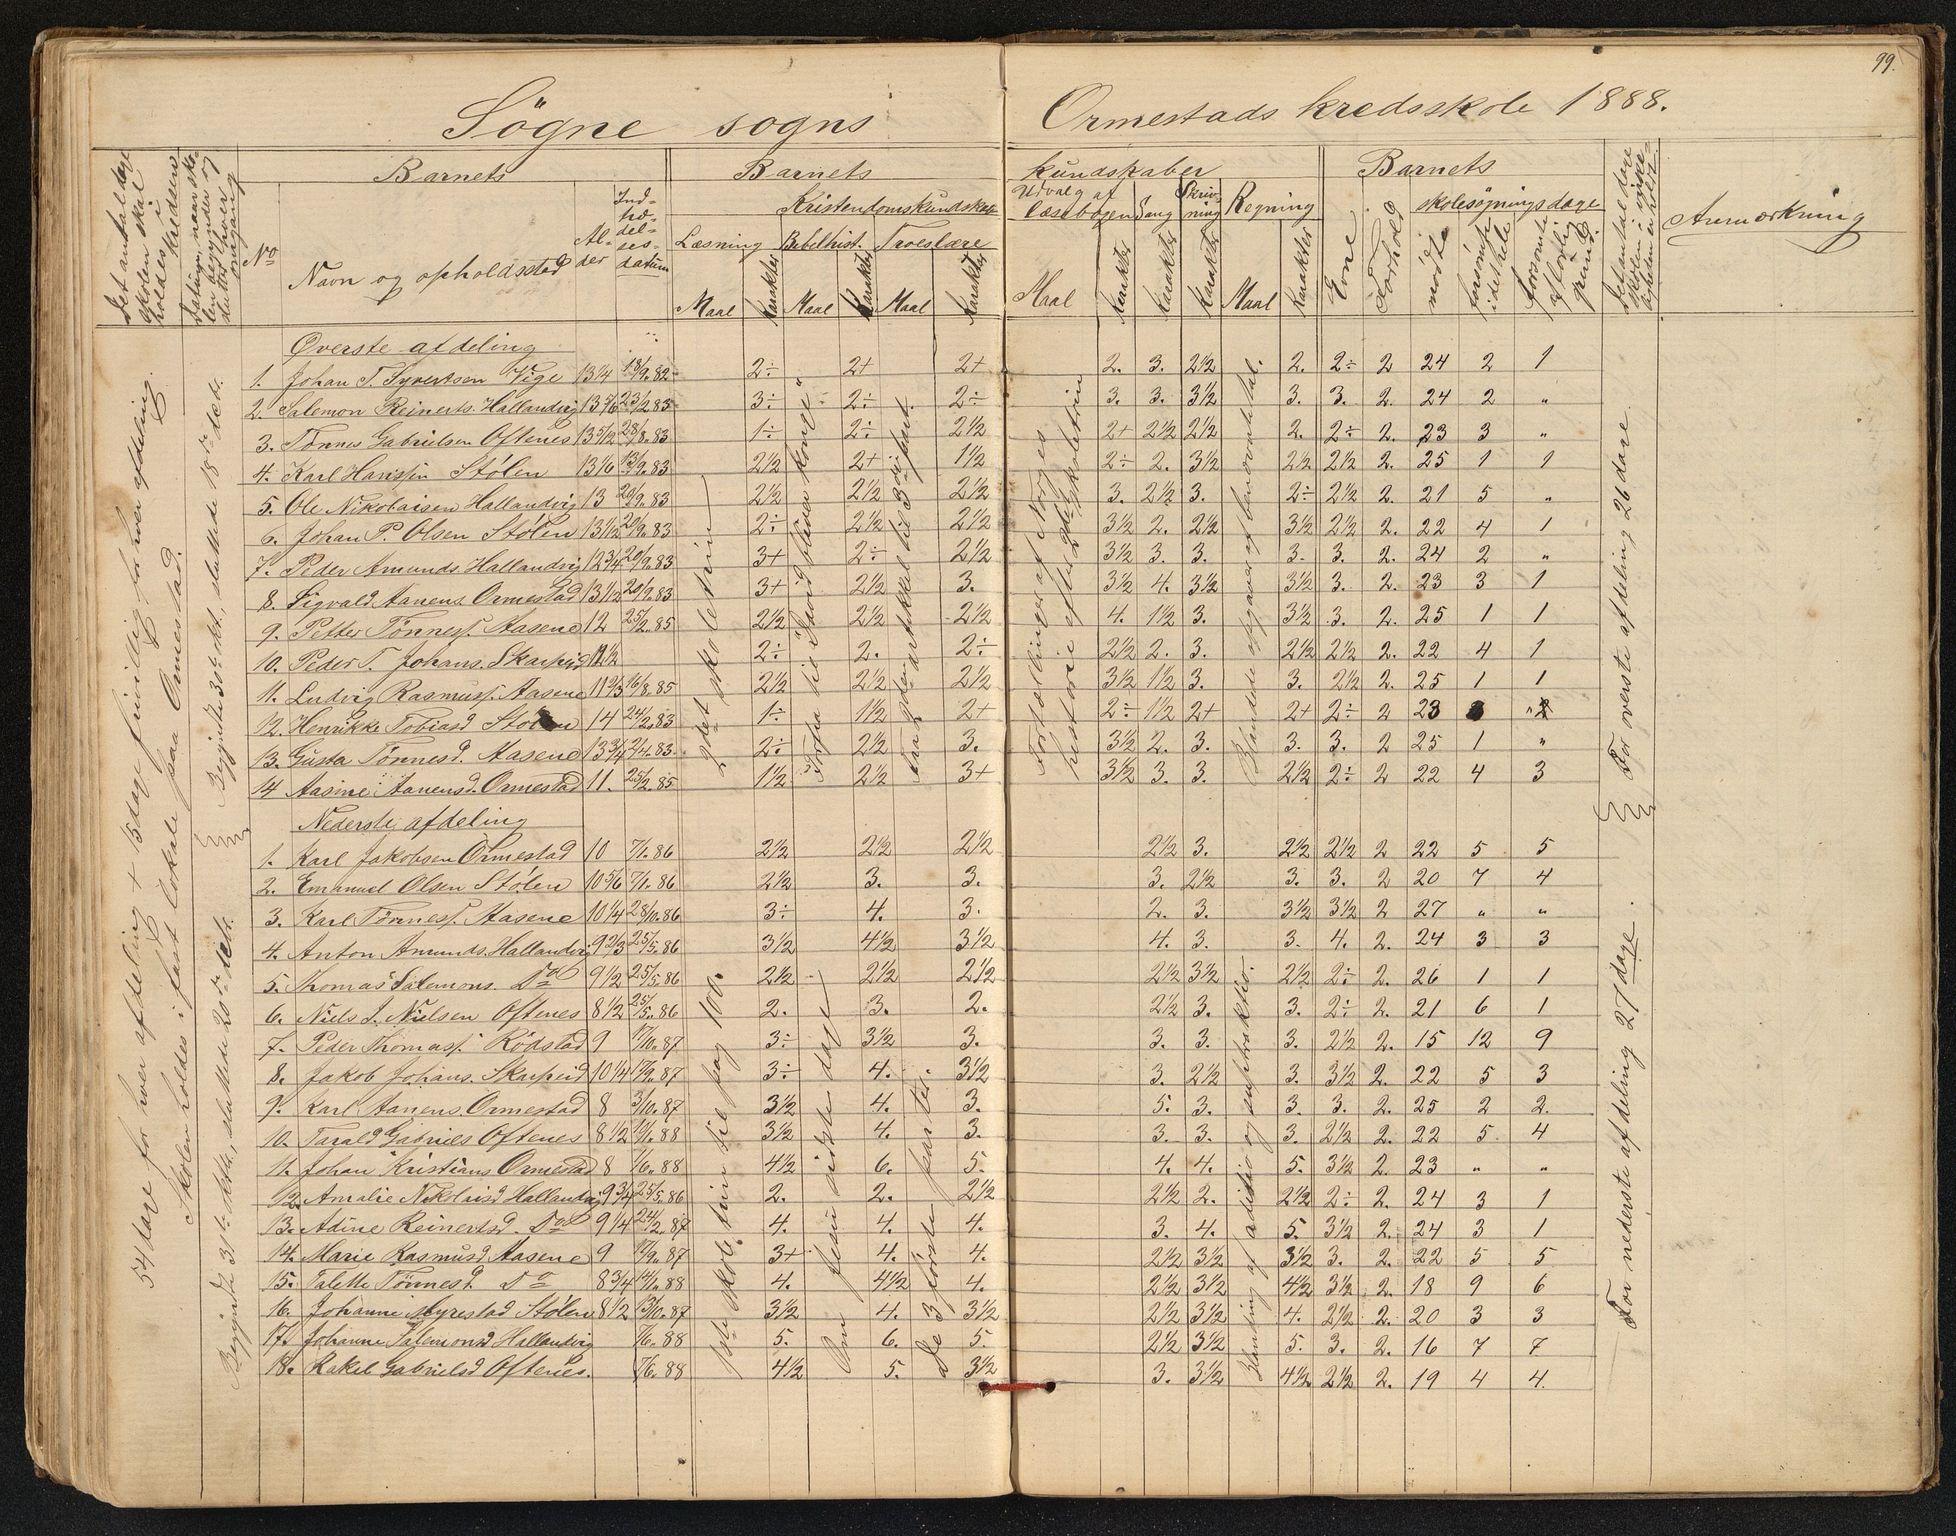 99.
Søgne sogns Ormestads kredsskole 1888.
Det antal dage skolen skal holdes i kredsen
Datum, naar skolen begynder og slutter hver omgang
Barnets
No
Navn og opholdssted
Alder
Indtrædelsesdatum
Barnets kundskaber
Kristendomskundskab
Læsning Bibelhist. Troeslære
Maal Karakter Maal Karakter Maal Karakter
Udvalg af læsebogen Sang Skrivning Regning
Maal Karakter Karakter Karakter Maal Karakter
Barnets
Evne Forhold
skolesøgningsdage
mødte forsømte idethele forsømte af lovlig grund
Det antal dage skolen i virkeligheden er holdt
Anmærkning
54 dage for hver afdeling + 15 dage frivillig for hver afdeling.
Skolen holdes i fast lokale paa Ormestad.
Øverste afdeling
1. Johan T. Syvertsen Vige 13 1/4 18/9.82 2÷ 2+ 2+ 2. 3. 2½ 2. 2÷ 2 24 2 1
2. Salemon Reinerts. Hallandvig 13 5/6 23/2.83 3÷ 2÷ 2÷ 3. 3. 3½ 3. 3. 2. 24 2 "
3. Tønnes Gabrielsen Oftenes 13 5/12 28/8.83 1÷ 2÷ 2½ 2+ 2½ 2½ 2. 2÷ 2. 23 3 "
4. Karl Hanssen Stølen 13 1/6 13/9.83 2½ 2+ 1½ 2÷ 2. 3½ 2½ 2½ 2. 25 1 1
5. Ole Nikolaisen Hallandvig 13 20/9.83 2½ 2½ 2½ 3. 2½ 3. 2÷ 2½ 2. 21 5 "
6. Johan P. Olsen Stølen 13 1/12 20/9.83 2÷ 2½ 2½ 3½ 2. 2½ 3½ 2½ 2. 22 4 1
7. Peder Amunds. Hallandvig 12 3/4 20/9.83 3+ 2÷ 2½ 3½ 3. 3. 3. 3. 2. 24 2 "
8. Sigvald Aanens. Ormestad 13 1/12 20/9.83 3+ 2½ 3. 3½ 4. 3½ 3½ 3. 2. 23 3 1
9. Petter Tønness. Aasene 12 25/2.85 2½ 2½ 2½ 4. 1½ 3. 3½ 3. 2. 25 1 1
10. Peder T. Johans. Skarpeid 2÷ 2. 2÷ 2½ 2. 3. 2½ 2½ 2. 22 4 1
11. Ludvig Rasmuss. Aasene 11 2/3 16/8.85 2½ 2½ 2½ 3½ 1½ 3. 3. 2½ 2. 25 1 1
12. Henrikke Tobiasd Stølen 14 24/2.83 1÷ 1½ 2+ 2÷ 1½ 2+ 2+ 2÷ 2 23
13. Gusta Tønnesd. Aasene 13 3/4 2/4.83 2÷ 2½ 3. 3½ 2. 3. 3. 3. 2 25 1 "
14 Aasine Aanensd. Ormestad 11. 25/2.85 1½ 2½ 3+ 3½ 3. 3. 2½ 2÷ 2 22 4 3
Begyndte 30te okt., sluttede 18de decb.
2det skoletrin
Forfra til "David bliver konge"
Fra 2den artikel til 3die part.
Fortællinger af Norges historie efter 2det skoletrin
Blandede opgaver af benævnte tal.
For øverste afdeling 26 dage.
Nederste afdeling
1. Karl Jakobsen Ormestad 10 7/1.86 2½ 2½ 2½ 2½ 3. 2½ 2½ 2 22 5 5
2. Emanuel Olsen Stølen 10 5/6 7/1.86 2½ 3. 3. 3. 2½ 3. 3. 2 20 7 4
3. Karl Tønness. Aasene 10 1/4 28/10.86 3÷ 4. 3. 2. 3. 3½ 3½ 2 27 " "
4. Anton Amunds. Hallandvig 9 2/3 25/5.86 3½ 4½ 3½ 4. 3. 3. 4. 2. 24 3 3
5. Thomas Salemons. Do 9 1/2 25/5.86 2½ 2½ 2½ 2½ 3½ 2½ 2÷ 2. 26 1 1
6. Niels J. Nielsen Oftenes 8 1/2 25/5.86 2. 3. 2. 2½ 3. 3. 2÷ 2. 21 6 1
7. Peder Thomass. Rødstad 9 17/10.87 3÷ 3½ 3. 3. 3. 3. 2½ 2. 15 12 9
8. Jakob Johans. Skarpeid 10 1/4 17/9.87 3÷ 4. 3½ 3. 2½ 3. 3½ 2. 22 5 3
9. Karl Aanens. Ormestad 8 3/10.87 3½ 4. 3. 5. 3. 3. 3. 2. 25 2 2.
10. Tarald Gabriels Oftenes 8 1/2 3½ 4. 3. 3. 3. 3. 2½ 2. 22 5 4
11. Johan Kristians. Ormestad 8 1/6.88 4½ 6. 5. 4. 4. 5. 3½ 2. 23 " "
12. Amalie Nikolaisd Hallandvig 9 3/4 25/5.86 2. 2. 2½ 2½ 2. 2½ 2÷ 2. 24 3 1
13. Adine Reinertsd. Do 9 1/4 24/2.87 4. 4. 4. 3. 4. 5. 3½ 2. 24 3 1
14. Marie Rasmusd. Aasene 9 17/9.87 3+ 4. 4. 2½ 3½ 3½ 3. 2. 22 5 5
15. Talette Tønnesd. Do 8 3/4 14/1.88 4. 4½ 4. 2½ 3½ 4½ 3½ 2. 18 9 6
16. Johanne Myrestad Stølen 8 1/2 13/10.87 3½ 4. 3½ 2½ 3½ 4. 2½ 2. 20 3 3
17. Johanne Salemonsd Hallandvig 7/6.88 5. 6. 5. 2½ 3½ 5. 3. 2. 16 7 7
18. Rakel Gabrielsd Oftenes. 7/6.88 4½ 5. 3½ 3. 3½ 4½ 2½ 2. 19 4 4.
Begyndte 31te okt., sluttede 20de decb.
1ste skoletrin til pag 100.
Om Jesu sidste dage
De 3 første parter.
Blanding af aditio og suptraktio
For nederste afdeling 27 dage.